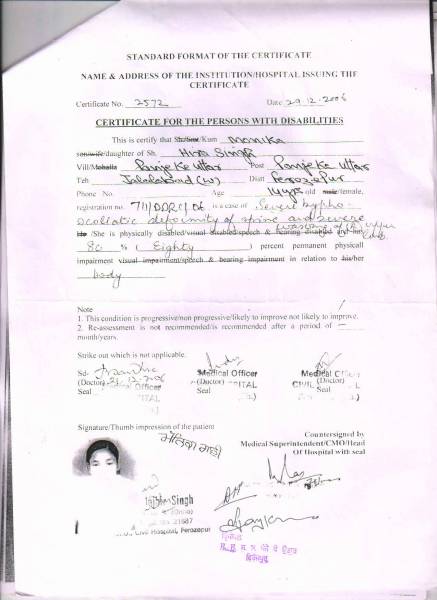 STANDARD FORMAT OF THE CERTIFICATE
NAME & ADDRESS OF THE INSTITUTION/HOSPITAL ISSUING THE
CERTIFICATE
Certificate No. 2572 Date 29.12.2006
CERTIFICATE FOR THE PERSONS WITH DISABILITIES
This is certify that Sh/Smt/Kum Monika
son/wife/daughter of Sh. Hira Singh
Vill/Mohalla Panje Ke Uttar Post Panje Ke Uttar
Teh Jalalabad (W) Distt Ferozepur
Phone No. Age 14 yrs old male/female,
registration no. is a case of Severe kypho-
scoliatic deformity of spine and severe
wasting of (R) upper
He /She is physically disabled/visual disabled/speech & hearing disabled and has limb
80 % ( Eighty ) percent permanent physical
impairment visual impairment/speech & hearing impairment in relation to his/her
body
Note
1. This condition is progressive/non progressive/likely to improve not likely to improve.
2. Re-assessment is not recommended/is recommended after a period of —
month/years.
Strike out which is not applicable.
Sd-
(Doctor)
Seal
Medical Officer
(Doctor)
Seal
(Doctor)
Seal
Signature/Thumb impression of the patient
Countersigned by
Medical Superintendent/CMO/Head
Of Hospital with seal
Singh
21687
Civil Hospital, Ferozepur